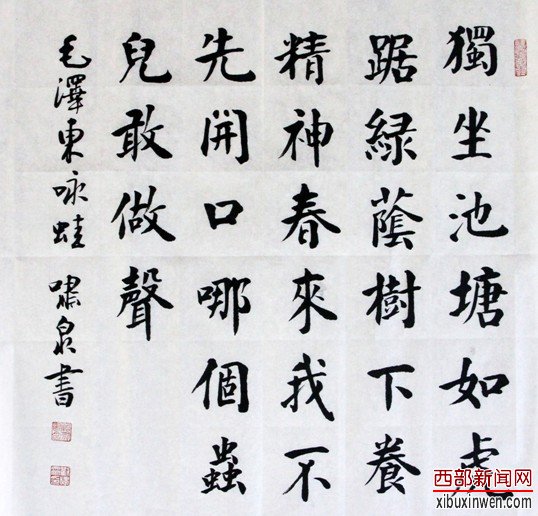 獨坐池塘如虎
踞綠蔭樹下養
精神春來我不
先開口哪個蟲
兒敢做聲
毛澤東咏蛙 嘯泉書
西部新闻网
xibuxinwen.com